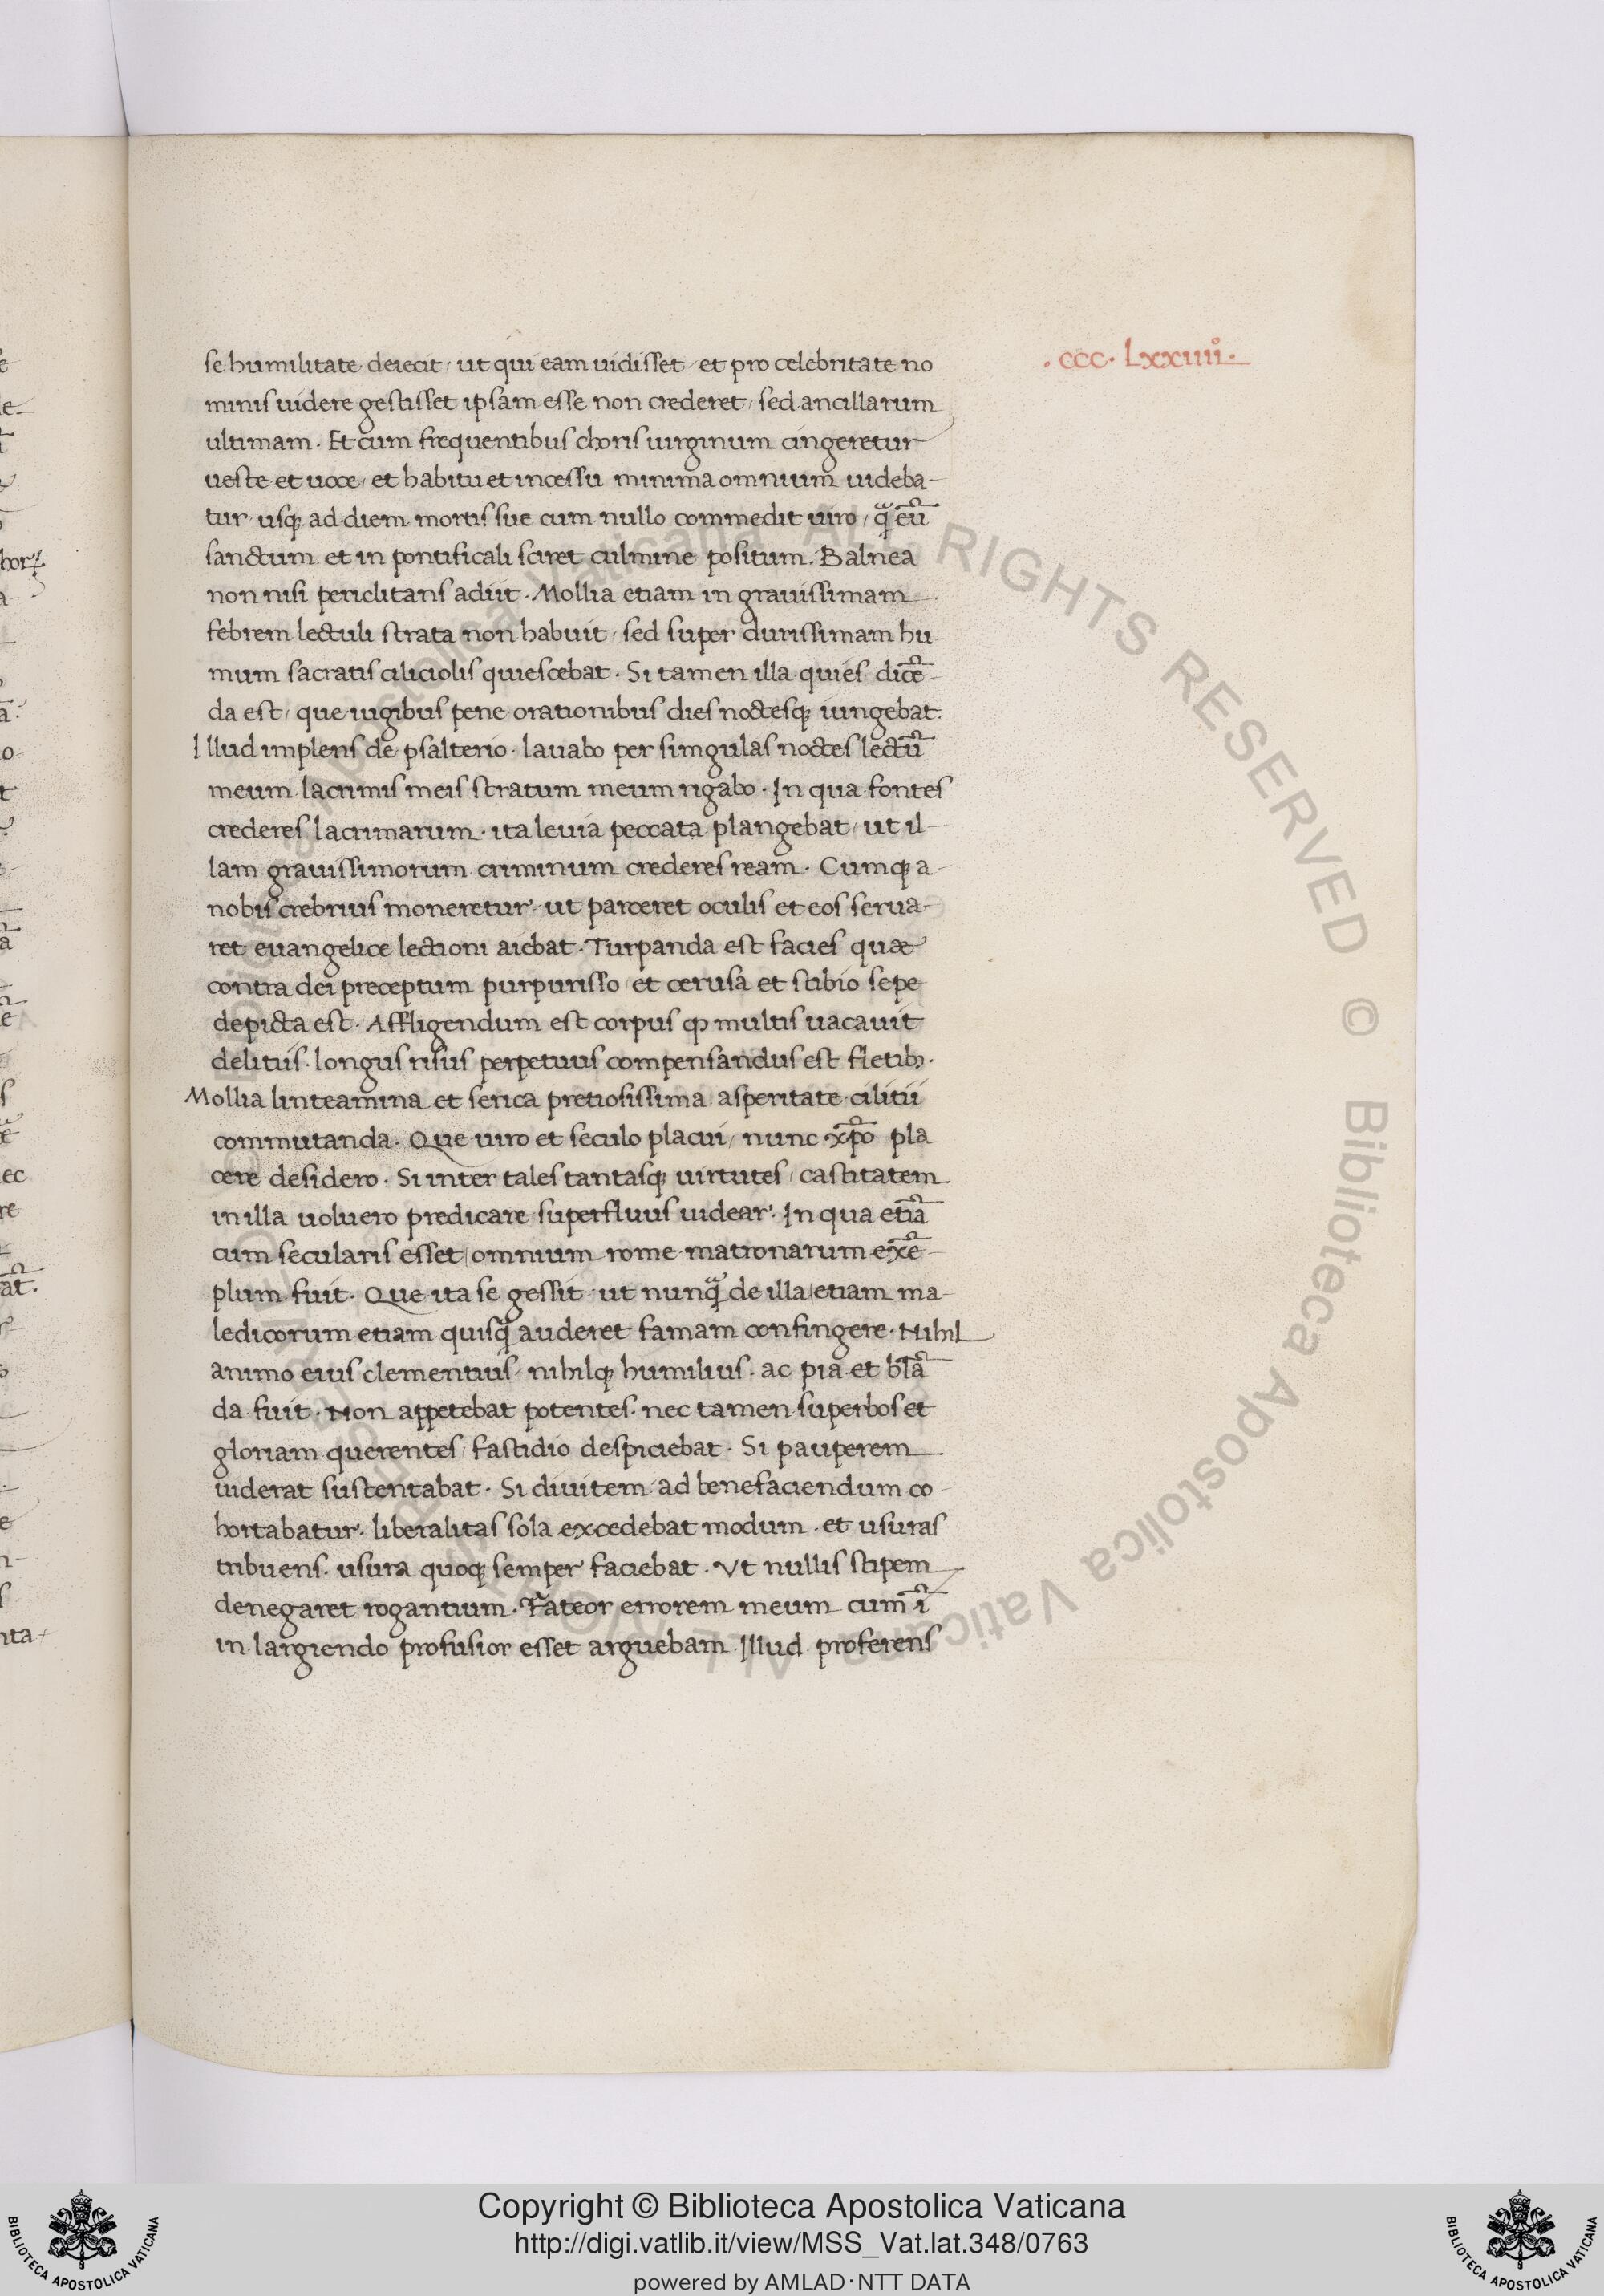 se humilitate deiecit, ut qui eam uidisset, et pro celebritate no
minis uidere gestisset ipsam esse non crederet, sed ancillarum
ultimam. Et cum frequentibus choris uirginum cingeretur
ueste et uoce, et habitu et incessu minima omnium uideba-
tur. usq; ad diem mortis sue cum nullo commedit uiro, qᷓ eū
sanctum et in pontificali sciret culmine positum. Balnea
non nisi periclitans adiit. Mollia etiam in grauissimam
febrem lectuli strata non habuit, sed super durissimam hu-
mum sacratis ciliciolis quiescebat. Si tamen illa quies dicē-
da est, que iugibus pene orationibus dies noctesq; iungebat.
Illud implens de psalterio. lauabo per simgulas noctes lectū
meum lacrimis meis stratum meum rigabo. In qua fontes
crederes lacrimarum. ita leuia peccata plangebat, ut il-
lam grauissimorum criminum crederes ream. Cumq; a-
nobis crebrius moneretur. ut parceret oculis et eos serua-
ret euangelice lectioni aiebat. Turpanda est facies quæ
contra dei preceptum purpurisso et cerusa et stibio sepe
depicta est. Affligendum est corpus ꝙ multis uacauit
delitiis. longus risus perpetuus compensandus est fletibꝫ.
Mollia linteamina et serica pretiosissima asperitate cilitii
commutanda. Que uiro et seculo placui, nunc xp̄o pla
cere desidero. Si inter tales tantasq; uirtutes, castitatem
in illa uoluero predicare superfluus uidear. In qua etiā
cum secularis esset, omnium rome matronarum exē-
plum fuit. Que ita se gessit ut nunqᷓ de illa, etiam ma-
ledicorum etiam quisqᷓ auderet famam confingere. Nihil
animo eius clementius, nihilq; humilius. ac pia et blā
da fuit. Non appetebat potentes. nec tamen superbos et
gloriam querentes, fastidio despiciebat. Si pauperem
uiderat sustentabat. Si diuitem ad benefaciendum co-
hortabatur. liberalitas sola excedebat modum. et usuras
tribuens. usura quoq; semper faciebat. Vt nullis stipem
denegaret rogantium. Fateor errorem meum cum ī
in largiendo profusior esset arguebam. Illud proferens
. ccc. Lxxiiii°.
© Biblioteca Apostolica Vaticana ALL RIGHTS RESERVED
© Biblioteca Apostolica Vaticana
Copyright © Biblioteca Apostolica Vaticana
http://digi.vatlib.it/view/MSS_Vat.lat.348/0763
powered by AMLAD·NTT DATA
BIBLIOTECA APOSTOLICA VATICANA
BIBLIOTECA APOSTOLICA VATICANA